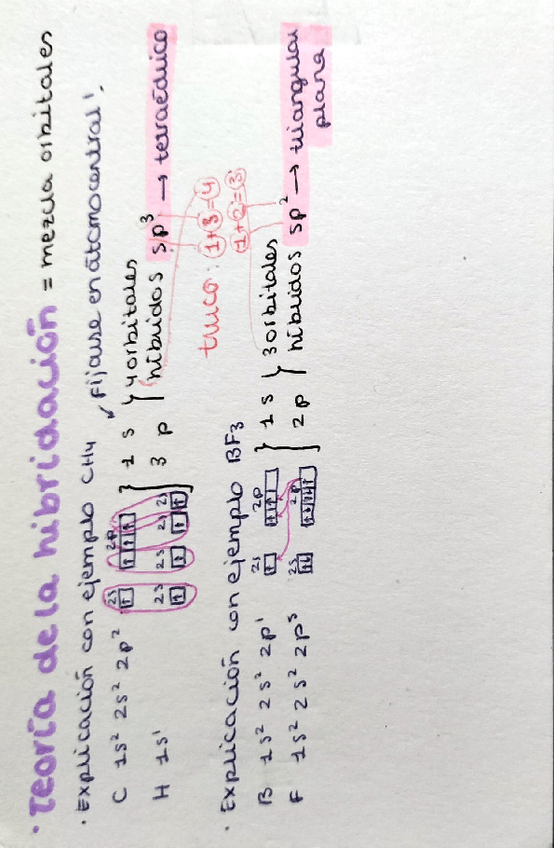 · Teoría de la hibridación = mezcla orbitales
· Explicación con ejemplo CH4 ↙ Fijarse en átomo central!
C 1s² 2s² 2p² 2s 2p } 1 s } 4 orbitales
H 1s¹ 2s 2s 2s 2s 3 p híbridos sp³ → tetraédrico
truco: 1+3=4
1+2=3
· Explicación con ejemplo BF3
B 1s² 2s² 2p¹ 2s 2p } 1 s } 3 orbitales
F 1s² 2s² 2p⁵ 2s 2p 2 p híbridos sp² → triangular
plana